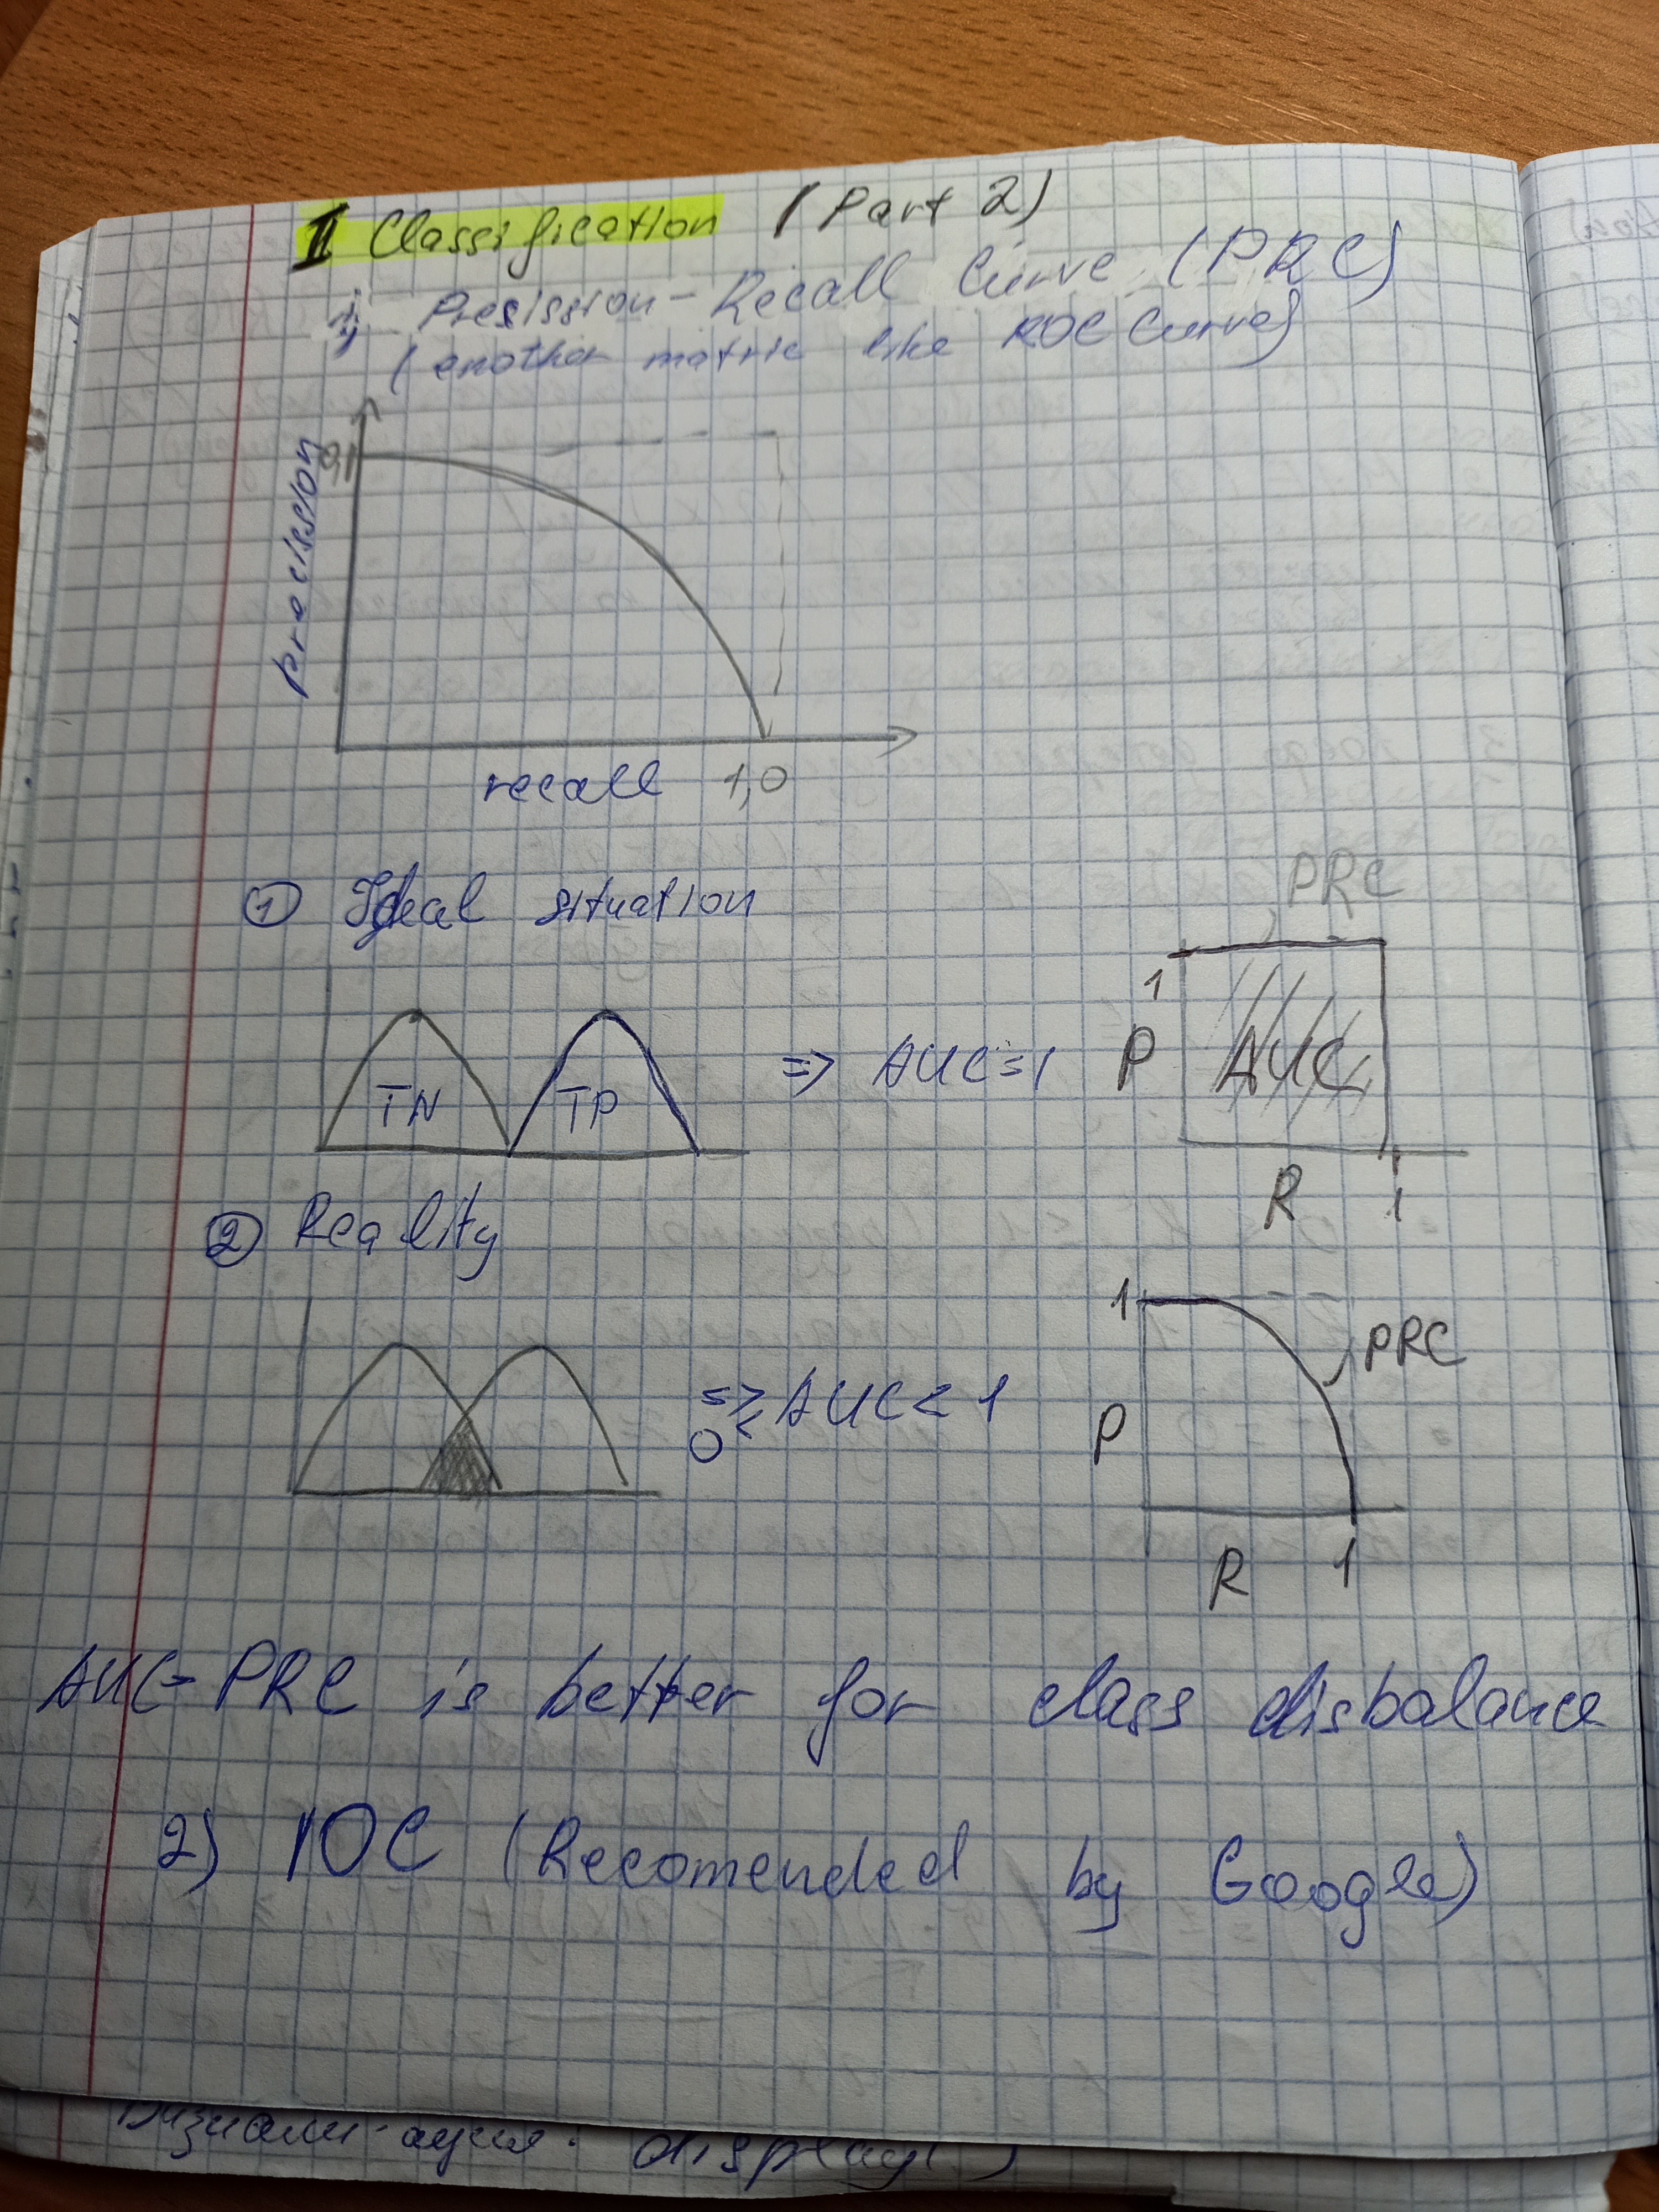 II Classification (Part 2)
Presission-Recall Curve (PRC)
(another matric like ROC Curve)
precission
recall 1,0
① Ideal situation
PRC
1
TN TP => AUC=1 P AUC
R 1
② Reality
1
PRC
=> 0 < AUC < 1 P
R 1
AUC-PRC is better for class disbalance
2) IOC (Recomended by Google)